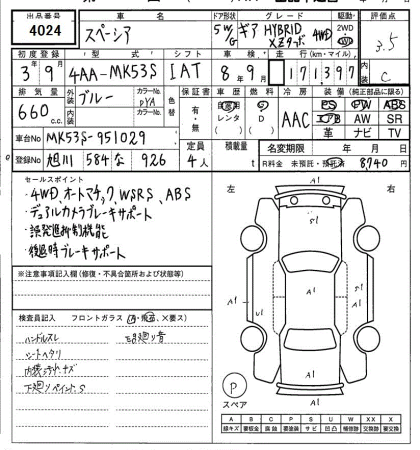 出品番号 車名 ドア形状 グレード 駆動 評価点
4024 スペーシア 5W/G ギア HYBRID XZターボ 4WD 2WD 4WD 3.5
初度登録 型式 シフト 車検 走行(km・マイル) 内装
3年9月 4AA-MK53S IAT 8年9月 171397 C
排気量 外装 ブルー カラーNo. 色替 保証書 車歴 燃料 冷房 装備(純正部品に限る)
660c.c. 内装 カラーNo. 有・無 レンタ D AAC PS PW ABS
エアB AW SR
革 ナビ TV
車台No MK53S-951029 定員 積載量 名変期限 年 月 日
登録No 旭川 584 な 926 4人 t R料金 未預託・預託済 8,740円
セールスポイント
・4WD、オートマチック、WSRS、ABS
・デュアルカメラブレーキサポート
・誤発進抑制機能
・後退時ブレーキサポート
左 右
S1
A1
A1 A1 A1
U1 A1 S1
A1
A1
※注意事項記入欄(修復・不具合箇所および状態等)
検査員記入 フロントガラス (A・飛石、×要ス)
ハンドルスレ
シートヘタリ
下廻りペイント、S
P
スペア
A B C P S U W X XX
線キズ 要板金 腐蝕 要塗装 サビ 凹凸 補修跡 要交換 交換済